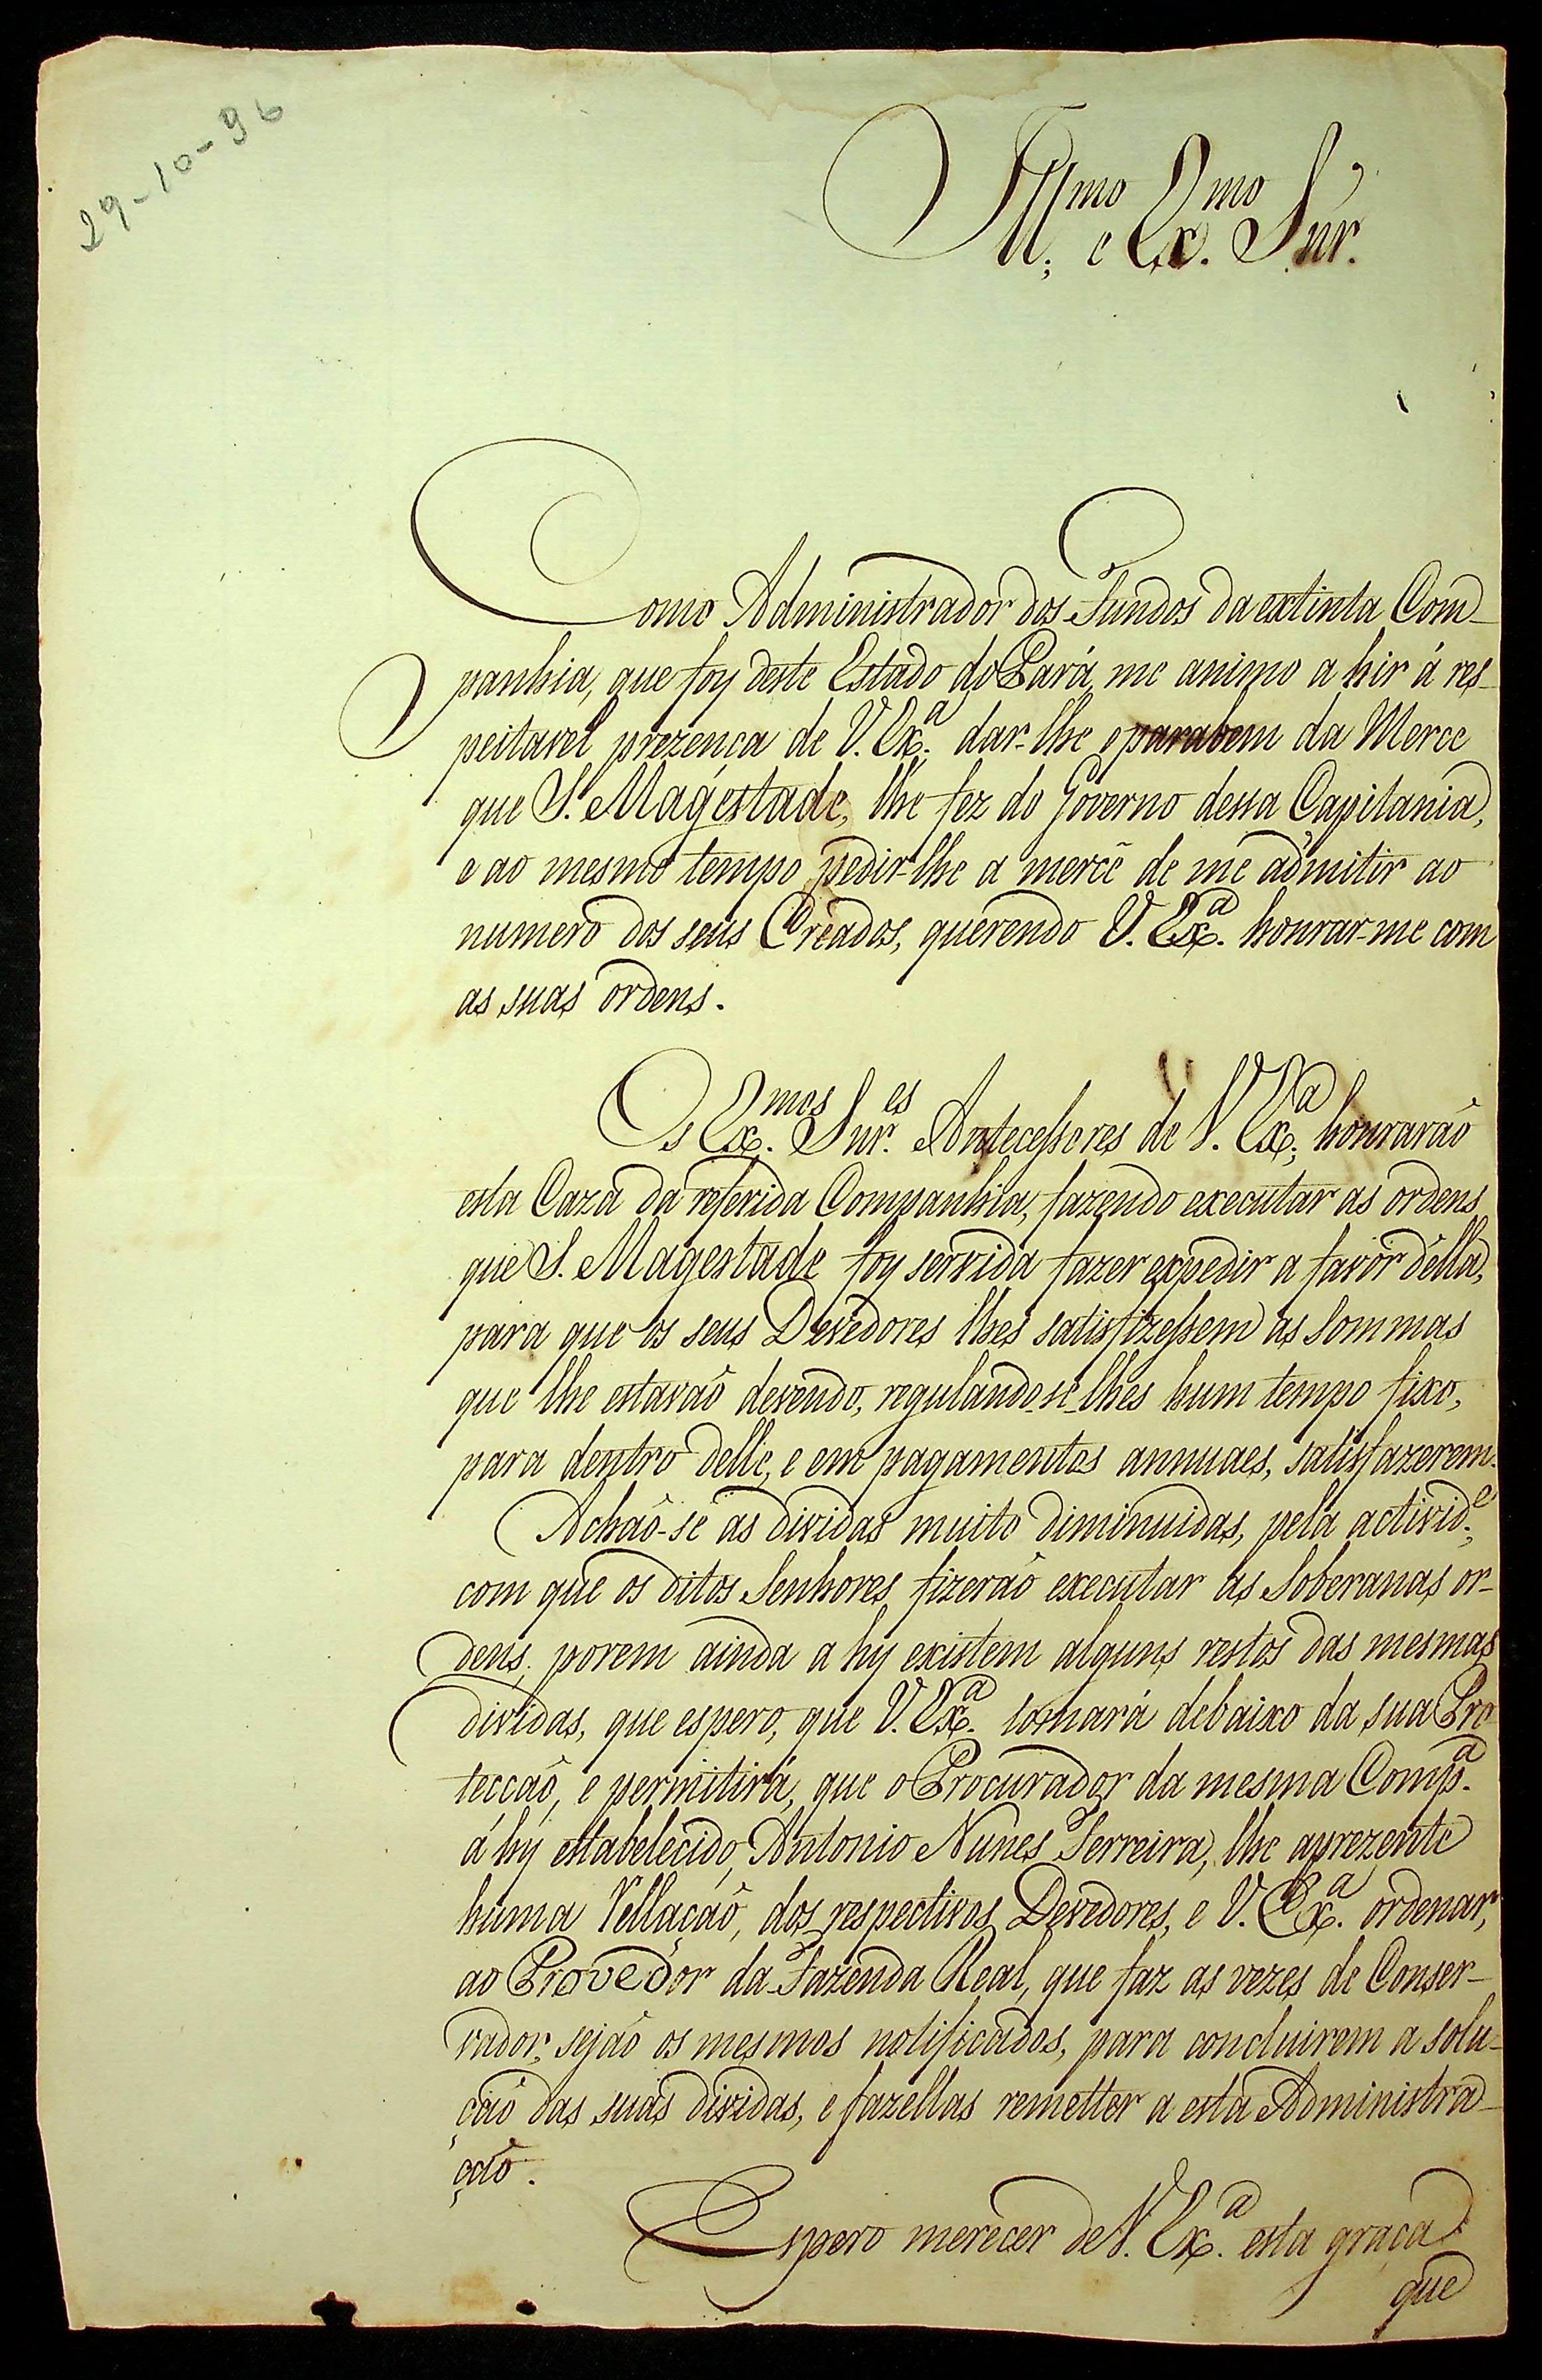 29-10-96
Ill.mo e Ex.mo Snr.
Como Administrador dos Fundos da extinta Com-
panhia, que foy deste Estado do Pará, me animo a hir á res-
peitavel prezença de V. Ex.a dar-lhe o parabem da Merce
que S. Magestade, lhe fez do Governo dessa Capitania,
e ao mesmo tempo pedir-lhe a mercê de me admitir ao
numero dos seus Creados, querendo V. Ex.a honrar-me com
as suas ordens.
Os Ex.mos Snr.es Antecessores de V. Ex.a honrarão
esta Caza da referida Companhia, fazendo executar as ordens
que S. Magestade foy servida fazer expedir a favor della,
para que os seus Devedores lhes satisfizessem as Sommas
que lhe estavão devendo, regulando-se-lhes hum tempo fixo,
para dentro delle, e em pagamentos annuaes, satisfazerem.
Achão-se as dividas muito diminuidas, pela activid.e
com que os ditos Senhores fizerão executar as Soberanas or-
dens; porem ainda a hy existem alguns restos das mesmas
dividas, que espero, que V. Ex.a tomará debaixo da sua Pro-
tecção, e permitirá, que o Procurador da mesma Comp.a
á hy estabelecido, Antonio Nunes Ferreira, lhe aprezente
huma Rellação, dos respectivos Devedores, e V. Ex.a ordenar,
ao Provedor da Fazenda Real, que faz as vezes de Conser-
vador, sejão os mesmos notificados, para concluirem a solu-
ção das suas dividas, e fazellas remetter a esta Administra-
ção.
Espero merecer de V. Ex.a esta graça
que